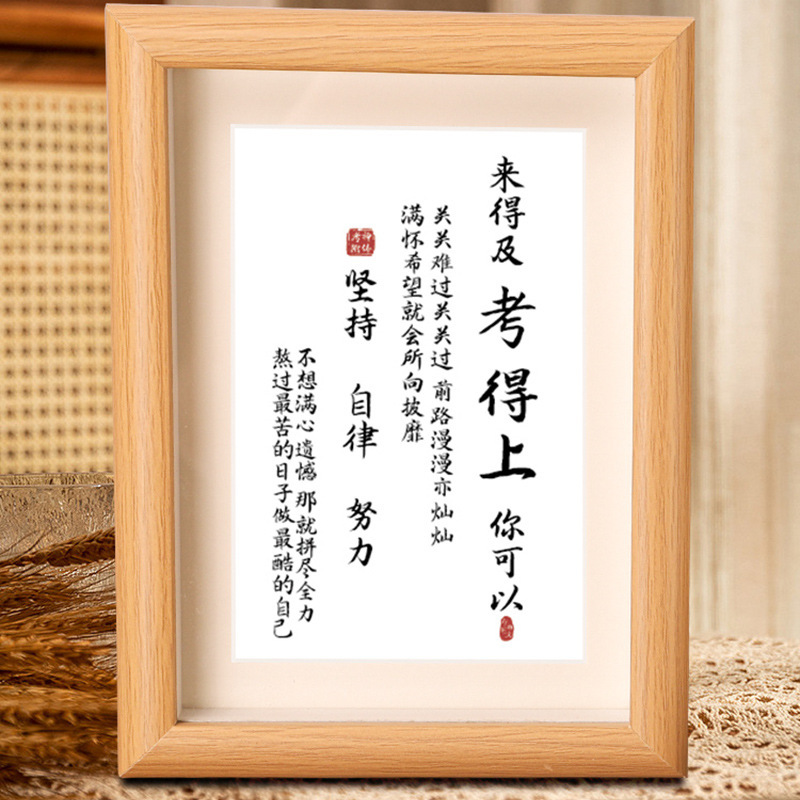 来得及 考得上 你可以
关关难过关关过 前路漫漫亦灿灿
满怀希望就会所向披靡
坚持 自律 努力
不想满心遗憾 那就拼尽全力
熬过最苦的日子做最酷的自己